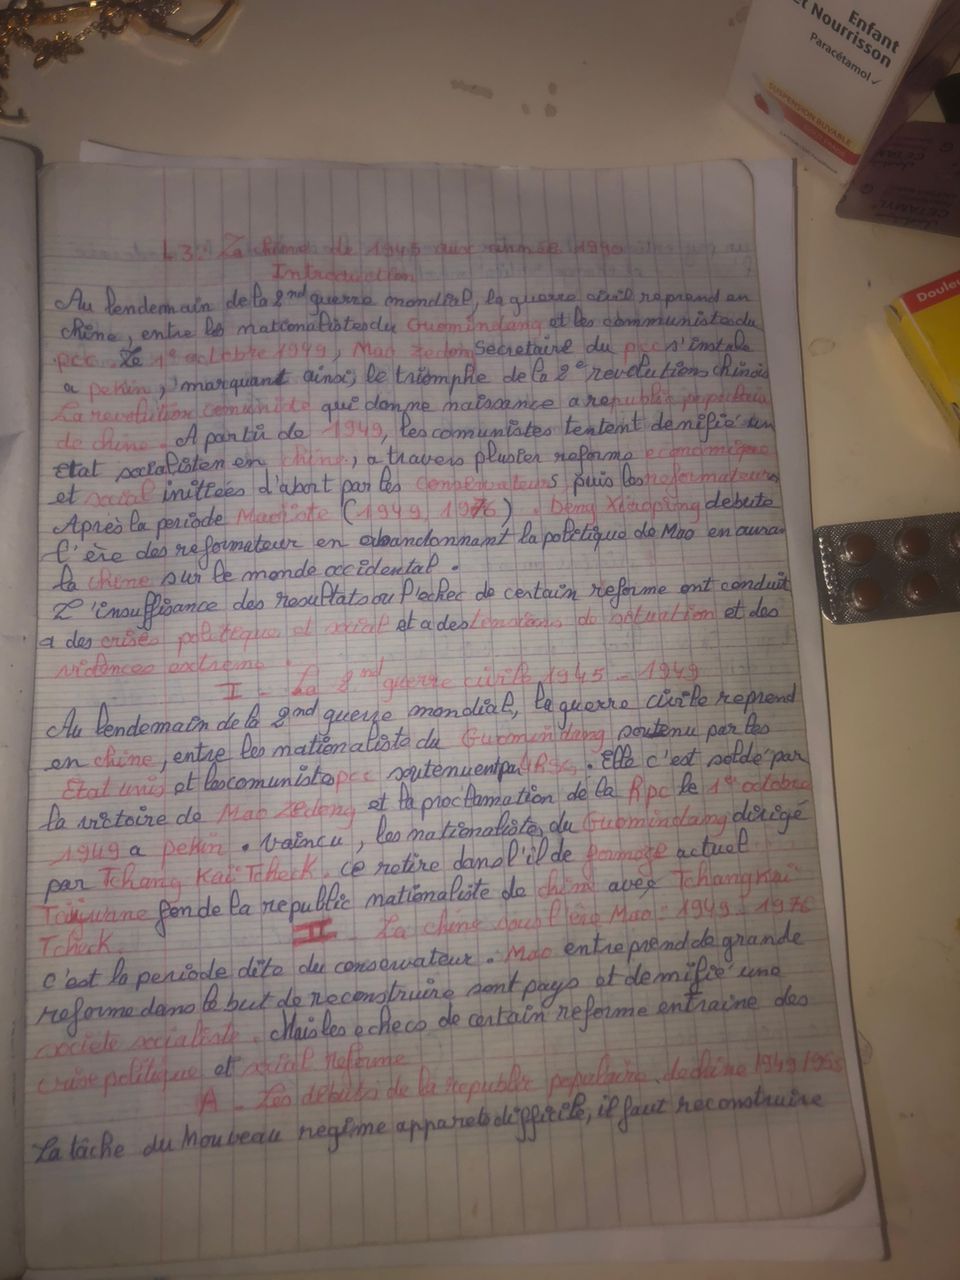 Enfant
et Nourrisson
Paracétamol
SUSPENSION BUVABLE
CETAMYL
Doule
L3: La chine de 1945 aux année 1990
Introduction
Au lendemain de la 2nd guerre mondial, la guerre civil reprend en
chine, entre les nationalistes du Guomindang et les communistes du
pcc. Le 1er octobre 1949, Mao Zedong Secretaire du pcc s'instale
a pekin, marquant ainsi, le triomphe de la 2e revolution chinois
La revolution comuniste qui donne naissance a republic populair
de chine. A partir de 1949, les comunistes tentent denifié un
etat socialisten en chine, a travers plusier reforme economique
et social initiées d'abort par les Conservateurs puis les reformateurs
Après la periode Maoiste (1949, 1976). Deng Xiaoping debute
l'ère des reformateur en abandonnant la politique de Mao en auran
la chine sur le monde occidental.
L'insuffisance des resultats ou l'echec de certain reforme ont conduit
a des crises politique et social et a des tensions de situation et des
violences extreme.
I - La 2nd guerre civile 1945 - 1949
Au lendemain de la 2nd guerre mondial, la guerre civile reprend
en chine, entre les nationaliste du Guomindang soutenu par les
Etat unis et les comuniste pcc soutenuent pa URSS. Elle c'est soldé par
la victoire de Mao Zedong et la proclamation de la Rpc le 1er octobre
1949 a pekin. Vaincu, les nationaliste du Guomindang dirigé
par Tchang Kaï Tcheck. ce retire dans l'il de formose actuel
Taiwane fonde la republic nationaliste de chine avec Tchang Kaï
Tcheck.
II - La chine sous l'ère Mao: 1949 - 1976
C'est la periode dite du conservateur. Mao entreprend de grande
reforme dans le but de reconstruire sont pays et demifié une
societe socialiste. Mais les echecs de certain reforme entraine des
crise politique et social reforme
A - Les debuts de la republic populaire de chine 1949 1955
La tâche du Nouveau regime apparets difficile, il faut reconstruire